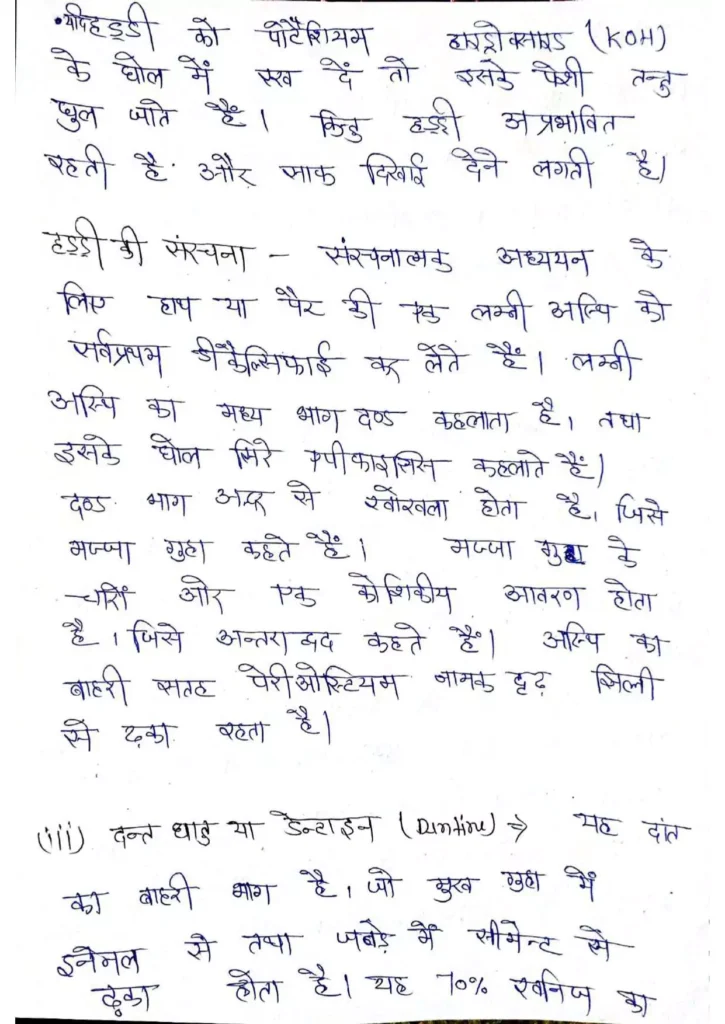 • यदि हड्डी को पोटैशियम हाइड्रोक्साइड (KOH)
के घोल में रख दें तो इसके पेशी तन्तु
घुल जाते हैं। किन्तु हड्डी अप्रभावित
रहती है और साफ दिखाई देने लगती है।
हड्डी की संरचना - संरचनात्मक अध्ययन के
लिए हाथ या पैर की एक लम्बी अस्थि को
सर्वप्रथम डीकैल्सिफाई कर लेते हैं। लम्बी
अस्थि का मध्य भाग दण्ड कहलाता है, तथा
इसके घोल सिरे एपीफाइसिस कहलाते हैं।
दण्ड भाग अन्दर से खोखला होता है, जिसे
मज्जा गुहा कहते हैं। मज्जा गुहा के
चारों ओर एक कोशिकीय आवरण होता
है, जिसे अन्तराछद कहते हैं। अस्थि का
बाहरी सतह पेरीओस्टियम नामक दृढ़ झिली
से ढका रहता है।
(iii) दन्त धातु या डेन्टाइन (Dentine) ⇒ यह दांत
का बाहरी भाग है, जो मुख गुहा में
इनेमल से तथा जबड़े में सीमेन्ट से
ढका होता है। यह 70% खनिज का